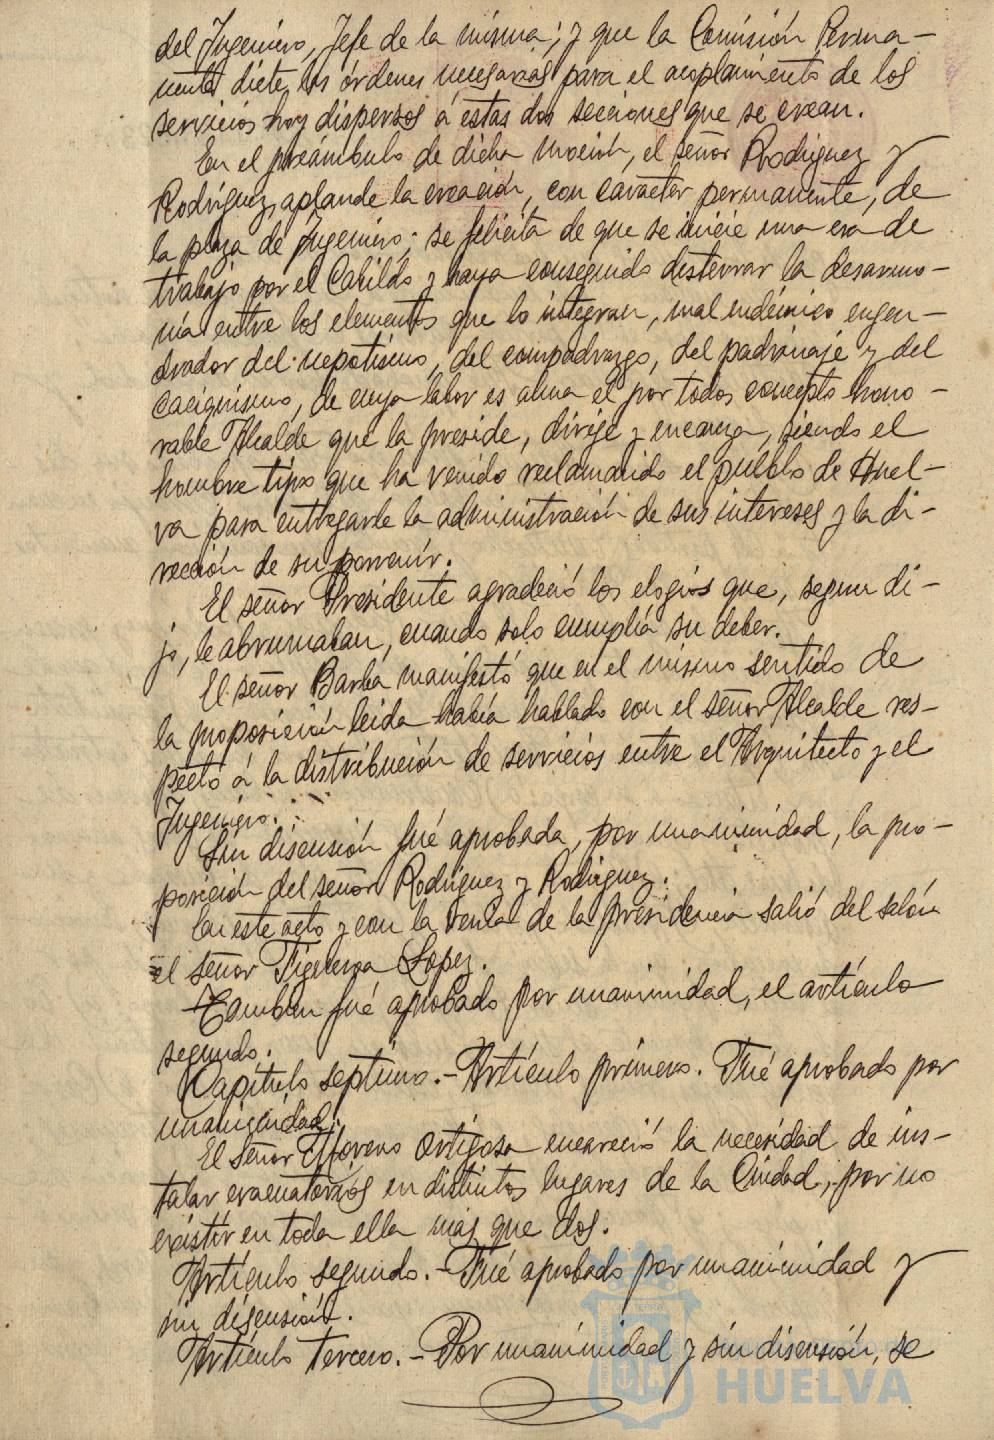 del Ingeniero, Jefe de la misma; y que la Comisión Perma-
nente dicte las órdenes necesarias para el acoplamiento de los
servicios hoy dispersos á estas dos secciones que se crean.
En el preámbulo de dicha moción, el señor Rodríguez y
Rodríguez, aplaude la creación, con carácter permanente, de
la plaza de Ingeniero; se felicita de que se inicie una era de
trabajo por el Cabildo y haya conseguido desterrar la desarmo-
nía entre los elementos que lo integran, mal endémico engen-
drador del nepotismo, del compadrazgo, del padrinaje y del
caciquismo, de cuya labor es alma el por todos concepto hono-
rable Alcalde que la preside, dirije y encauza, siendo el
hombre tipo que ha venido reclamando el pueblo de Huel-
va para entregarle la administración de sus intereses y la di-
rección de su porvenir.
El señor Presidente agradeció los elogios que, según di-
jo, le abrumaban, cuando solo cumplía su deber.
El señor Barba manifestó que en el mismo sentido de
la proposición leida había hablado con el señor Alcalde res-
pecto á la distribución de servicios entre el Arquitecto y el
Ingeniero.
Sin discusión fué aprobada, por unanimidad, la pro-
posición del señor Rodríguez y Rodríguez.
En este acto y con la venia de la presidencia salió del salón
el señor Figueroa Lopez.
Tambien fué aprobado por unanimidad, el artículo
segundo.
Capítulo septimo.- Artículo primero. Fué aprobado por
unanimidad.
El señor Moreno Ortigosa encareció la necesidad de ins-
talar evacuatorios en distintos lugares de la Ciudad, por no
existir en toda ella más que dos.
Artículo segundo.- Fué aprobado por unanimidad y
sin discusión.
Artículo tercero.- Por unanimidad y sin discusión, se
HUELVA